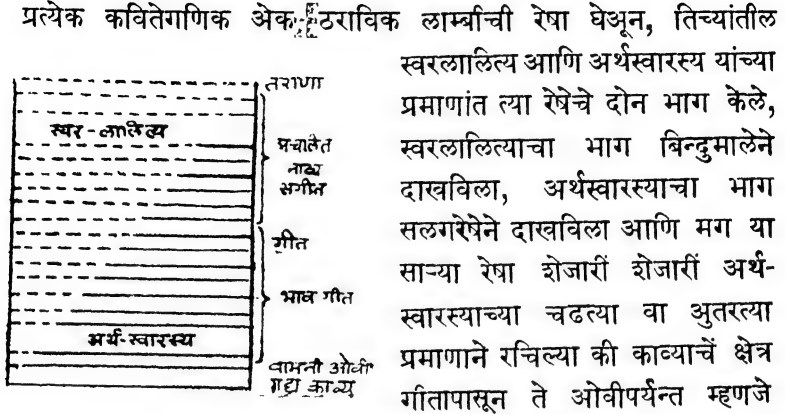 प्रत्येक कवितेगणिक अेक ठराविक लाम्बीची रेषा घेअून, तिच्यांतील
स्वरलालित्य आणि अर्थस्वारस्य यांच्या
प्रमाणांत त्या रेषेचे दोन भाग केले,
स्वरलालित्याचा भाग बिन्दुमालेने
दाखविला, अर्थस्वारस्याचा भाग
सलगरेषेने दाखविला आणि मग या
साऱ्या रेषा शेजारीं शेजारीं अर्थ-
स्वारस्याच्या चढत्या वा अुतरत्या
प्रमाणाने रचिल्या की काव्याचें क्षेत्र
गीतापासून ते ओवीपर्यन्त म्हणजे
तराणा
स्वर-लालित्य
प्रचलित
नाट्य
संगीत
गीत
भाव गीत
अर्थ-स्वारस्य
वामनी ओवी
गद्य काव्य